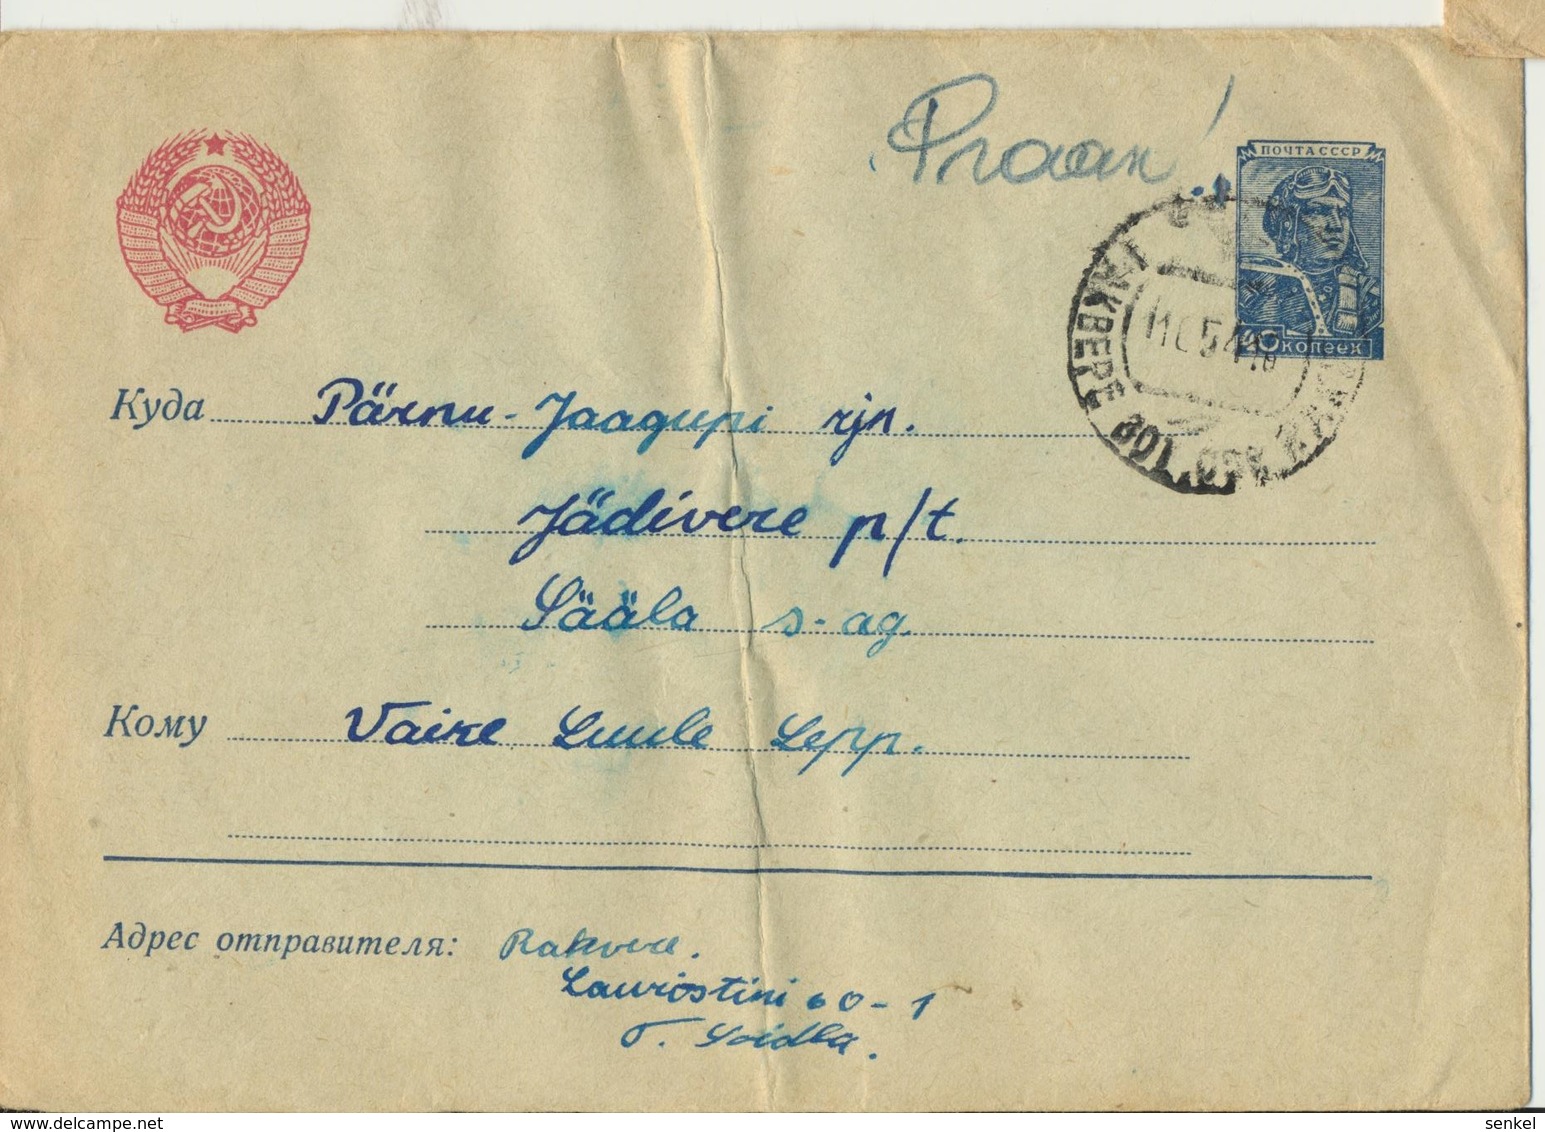 Praan!
ПОЧТА СССР
40 копеек
RAKVERE
11 6 54 18
Куда Pärnu-Jaagupi rjn.
Jädivere p/t.
Sääla s-ag.
Кому Vaike Luule Lepp.
Адрес отправителя: Rakvere.
Lauristini 60-1
T. Soidla.
www.delcampe.net
senkel